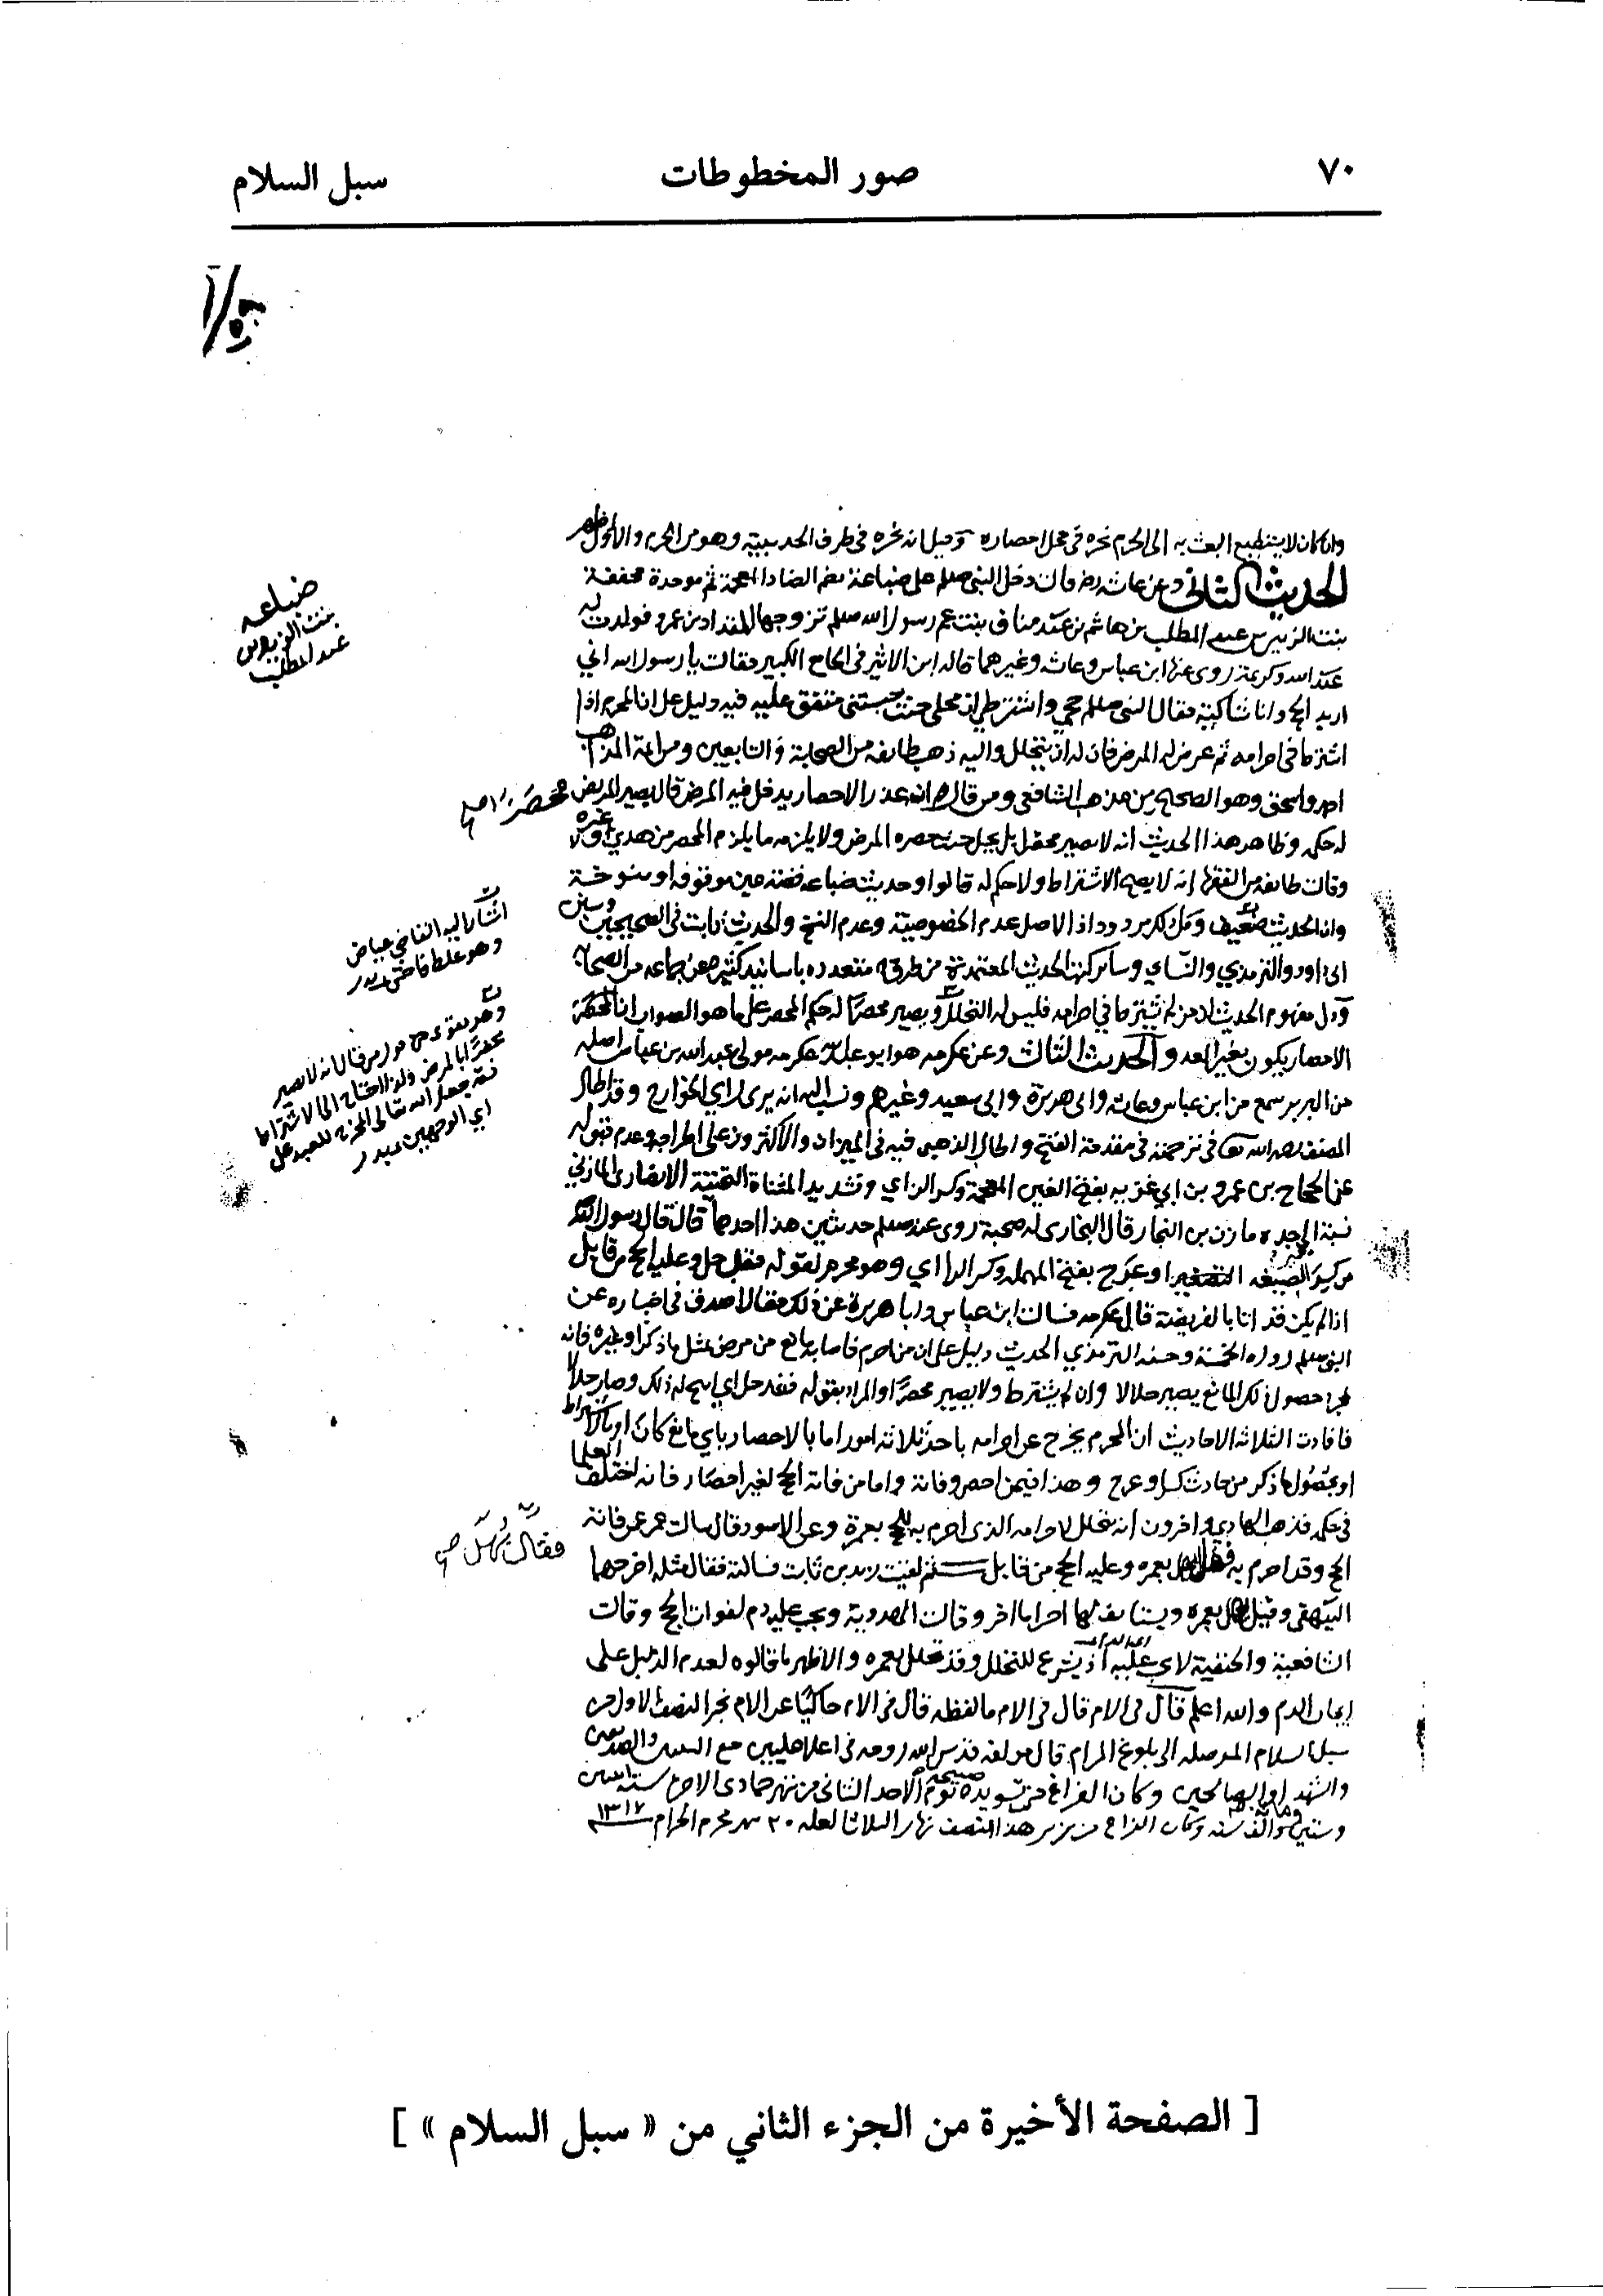 ٧٠
صور المخطوطات
سبل السلام
وان كان لا يستطيع البعث به الى الحرم نحره في محل احصاره وقيل انه نحره في طرف الحديبية وهو من الحرم والاول اظهر
الحديث الثاني وعن عائشه رضي قالت دخل النبي صلعم على ضباعة بضم الضاد المعجمة ثم موحدة مخففة
بنت الزبير بن عبد المطلب بن هاشم بن عبد مناف بنت عم رسول الله صلعم تزوجها المقداد بن عمرو فولدت له
عبد الله وكريمة روى عنها ابن عباس وعائشه وغيرهما قاله ابن الاثير في الجامع الكبير فقالت يا رسول الله اني
اريد الحج وانا شاكية فقال النبي صلعم حجي واشترطي ان محلي حيث حبستني متفق عليه فيه دليل على ان المحرم اذا
اشترط في احرامه ثم عرض له المرض فان له ان يتحلل واليه ذهب طائفه من الصحابة والتابعين ومن ائمة المذاهب
احمد واسحق وهو الصحيح من مذهب الشافعي ومن قال ان عذر الاحصار يدخل فيه المرض قال يصير المريض محصرا
له حكمه وظاهر هذا الحديث انه لا يصير محصرا بل يحل حيث حصره المرض ولا يلزمه ما يلزم المحصر من هدي او غيره
وقالت طائفه من الفقها انه لا يصح الاشتراط ولا حكم له قالوا وحديث ضباعه قصة عين موقوفه او منسوخة
وان الحديث ضعيف وكل ذلك مردود اذ الاصل عدم الخصوصية وعدم النسخ والحديث ثابت في الصحيحين وسنن
ابي داود والترمذي والنسائي وسائر كتب الحديث المعتمدة من طرق متعدده باسانيد كثيره عن جماعه من الصحابة
ودل مفهوم الحديث ان من لم يشترط في احرامه فليس له التحلل ويصير محصرا له حكم المحصر على ما هو الصواب
الاحصار يكون بغير العدو والحديث الثالث وعن عكرمه هو ابو عبد الله عكرمه مولى عبد الله بن عباس اصله
من البربر سمع من ابن عباس وعائشه وابي هريرة وابي سعيد وغيرهم ونسب اليه انه يرى راي الخوارج وقد اطال
المصنف رحمه الله تعالى في ترجمته في مقدمة الفتح واطال الذهبي فيه في الميزان والاكثرون على اطراحه وعدم قبوله
عن الحجاج بن عمرو بن ابي غزيه بفتح الغين المعجمة وكسر الزاي وتشديد المثناة التحتية الانصاري المازني
نسبة الى جده مازن بن النجار قال البخاري له صحبة روى عنه صلعم حديثين هذا احدهما قال قال رسول الله
من كسر الصيغه او عرج بفتح المهمله وكسر الراء اي وهو محرم لقوله فقد حل وعليه الحج من قابل
اذا لم يكن قد اتا بالفريضة قال عكرمه فسالت ابن عباس وابا هريرة عن ذلك فقالا صدق في اخباره عن
النبي صلعم رواه الخمسة وحسنه الترمذي الحديث دليل على ان من احرم فاصابه مانع من مرض مثل ما ذكر او غيره فانه
بمجرد حصول ذلك المانع يصير حلالا وان لم يشترط ولا يصير محصرا والمراد بقوله فقد حل اي ابيح له ذلك وصار حلالا
فافادت الثلاثه الاحاديث ان المحرم يخرج عن احرامه باحد ثلاثه امور اما بالاحصار باي مانع كان او بالاشتراط
او بحصول ما ذكر من حادث كسر او عرج وهذا فيمن احصر وفاته واما من فاته الحج لغير احصار فانه اختلف العلما
في حكمه فذهب الهادي واخرون انه يتحلل باحرامه الذي احرم به للحج بعمرة وعن الاسود قال سالت عمر عن من فاته
الحج وقد احرم به فقال يهل بعمره وعليه الحج من قابل ثم لقيت زيد بن ثابت فسالته فقال مثله اخرجهما
البيهقي وقيل يهل بعمره ويستانف لها احراما اخر وقالت الهدوية ويجب عليه دم لفوات الحج وقالت
الشافعية والحنفية لا يجب عليه اذ يشرع للتحلل وقد تحلل بعمره والاظهر ما قالوه لعدم الدليل على
ايجاب الدم والله اعلم قال في الام قال في الام ما لفظه قال في الام حاكيا عن الام نجز النصف الاول من
سبل السلام الموصله الى بلوغ المرام قال مولفه قدس الله روحه في اعلا عليين مع النبيين والصديقين
والشهدا والصالحين وكان الفراغ من تسويده صبيحة يوم الاحد الثاني من شهر جمادى الاخرى سنة
وستين ومائة والف سنه وكان الفراغ من زبر هذا النصف نهار الثلاثا لعله ٢٠ شهر محرم الحرام ١٣١٧
ضباعه
بنت الزبير بن
عبد المطلب
اشار اليه القاضي عياض
وهو غلط فاحش
اي الوجهين
فقال يهل صح
[ الصفحة الأخيرة من الجزء الثاني من « سبل السلام » ]